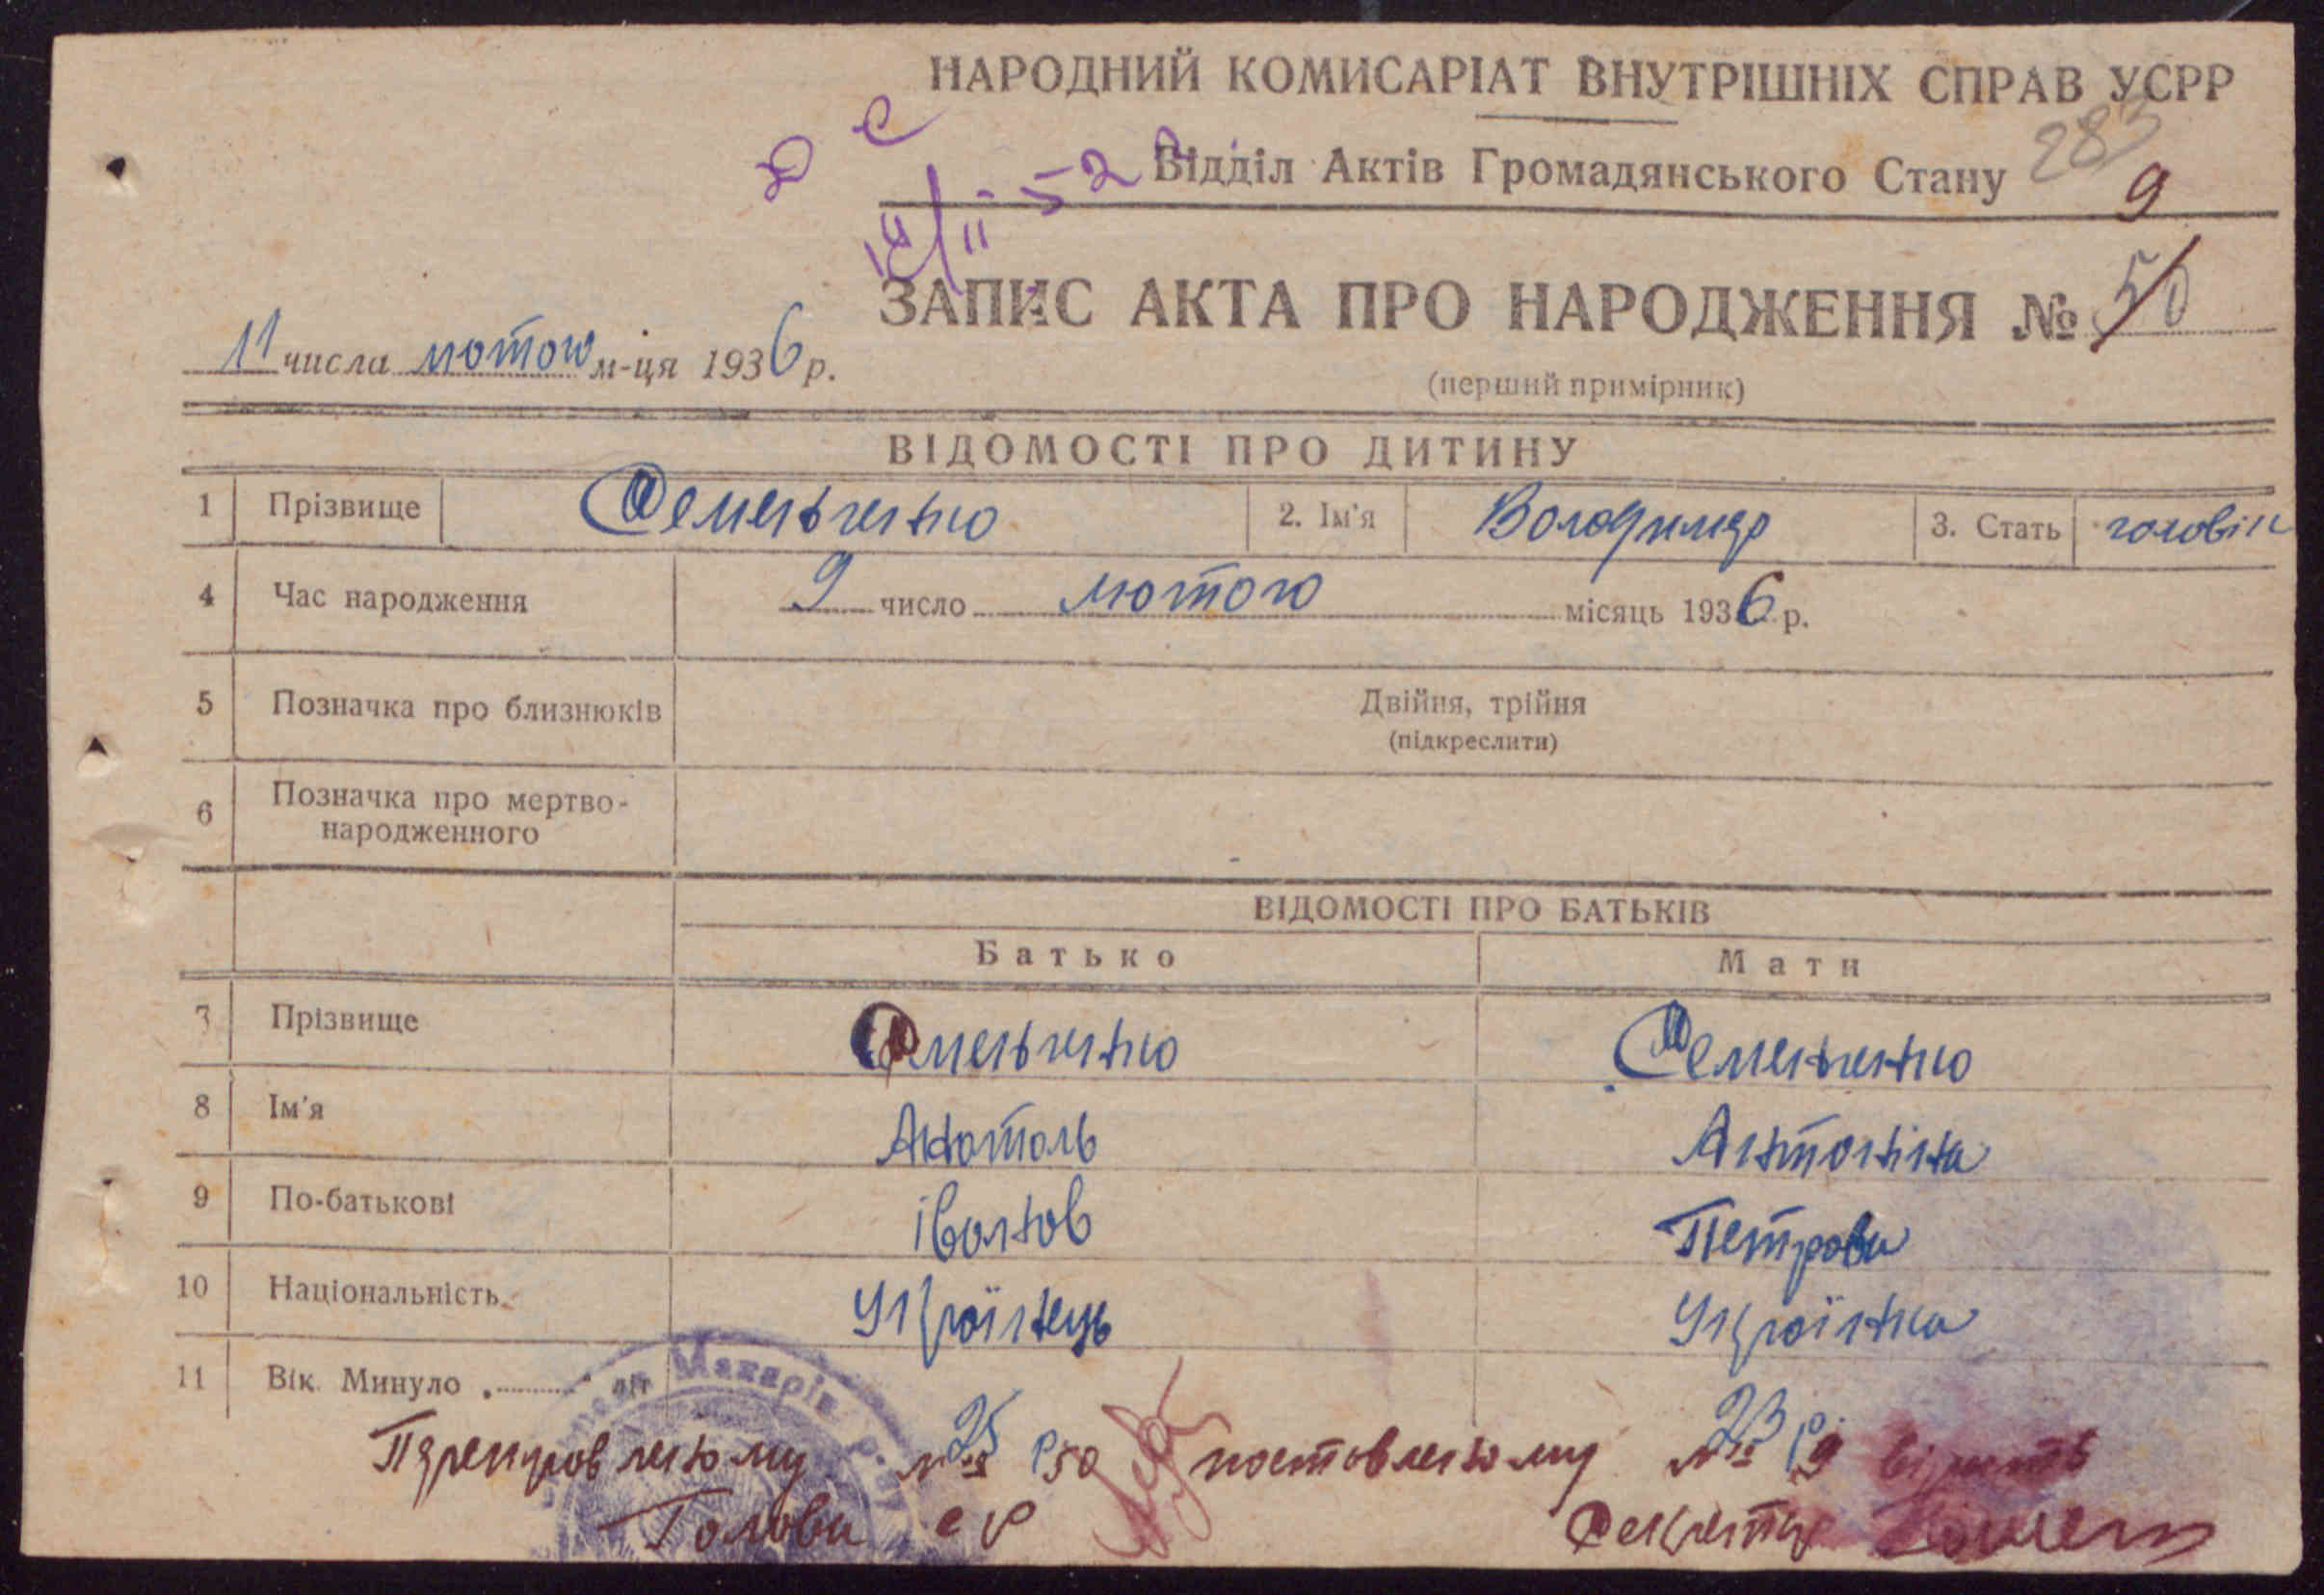 НАРОДНИЙ КОМИСАРІАТ ВНУТРІШНІХ СПРАВ УСРР
283
Відділ Актів Громадянського Стану
9
ЗАПИС АКТА ПРО НАРОДЖЕННЯ № 50
11 числа лютого м-ця 1936 р.
(перший примірник)
ВІДОМОСТІ ПРО ДИТИНУ
1 Прізвище Омельченко 2. Ім'я Володимер 3. Стать чоловіч
4 Час народження 9 число лютого місяць 1936 р.
5 Позначка про близнюків Двійня, трійня
(підкреслити)
6 Позначка про мертво-
народженного
ВІДОМОСТІ ПРО БАТЬКІВ
Батько Мати
7 Прізвище Омельченко Омельченко
8 Ім'я Анатоль Антоніна
9 По-батькові Іванов Петрови
10 Національність Українець Українка
11 Вік. Минуло „ " літ 25 р 23 р.
№ 50 поставленому № 9
Голова с р Секретар